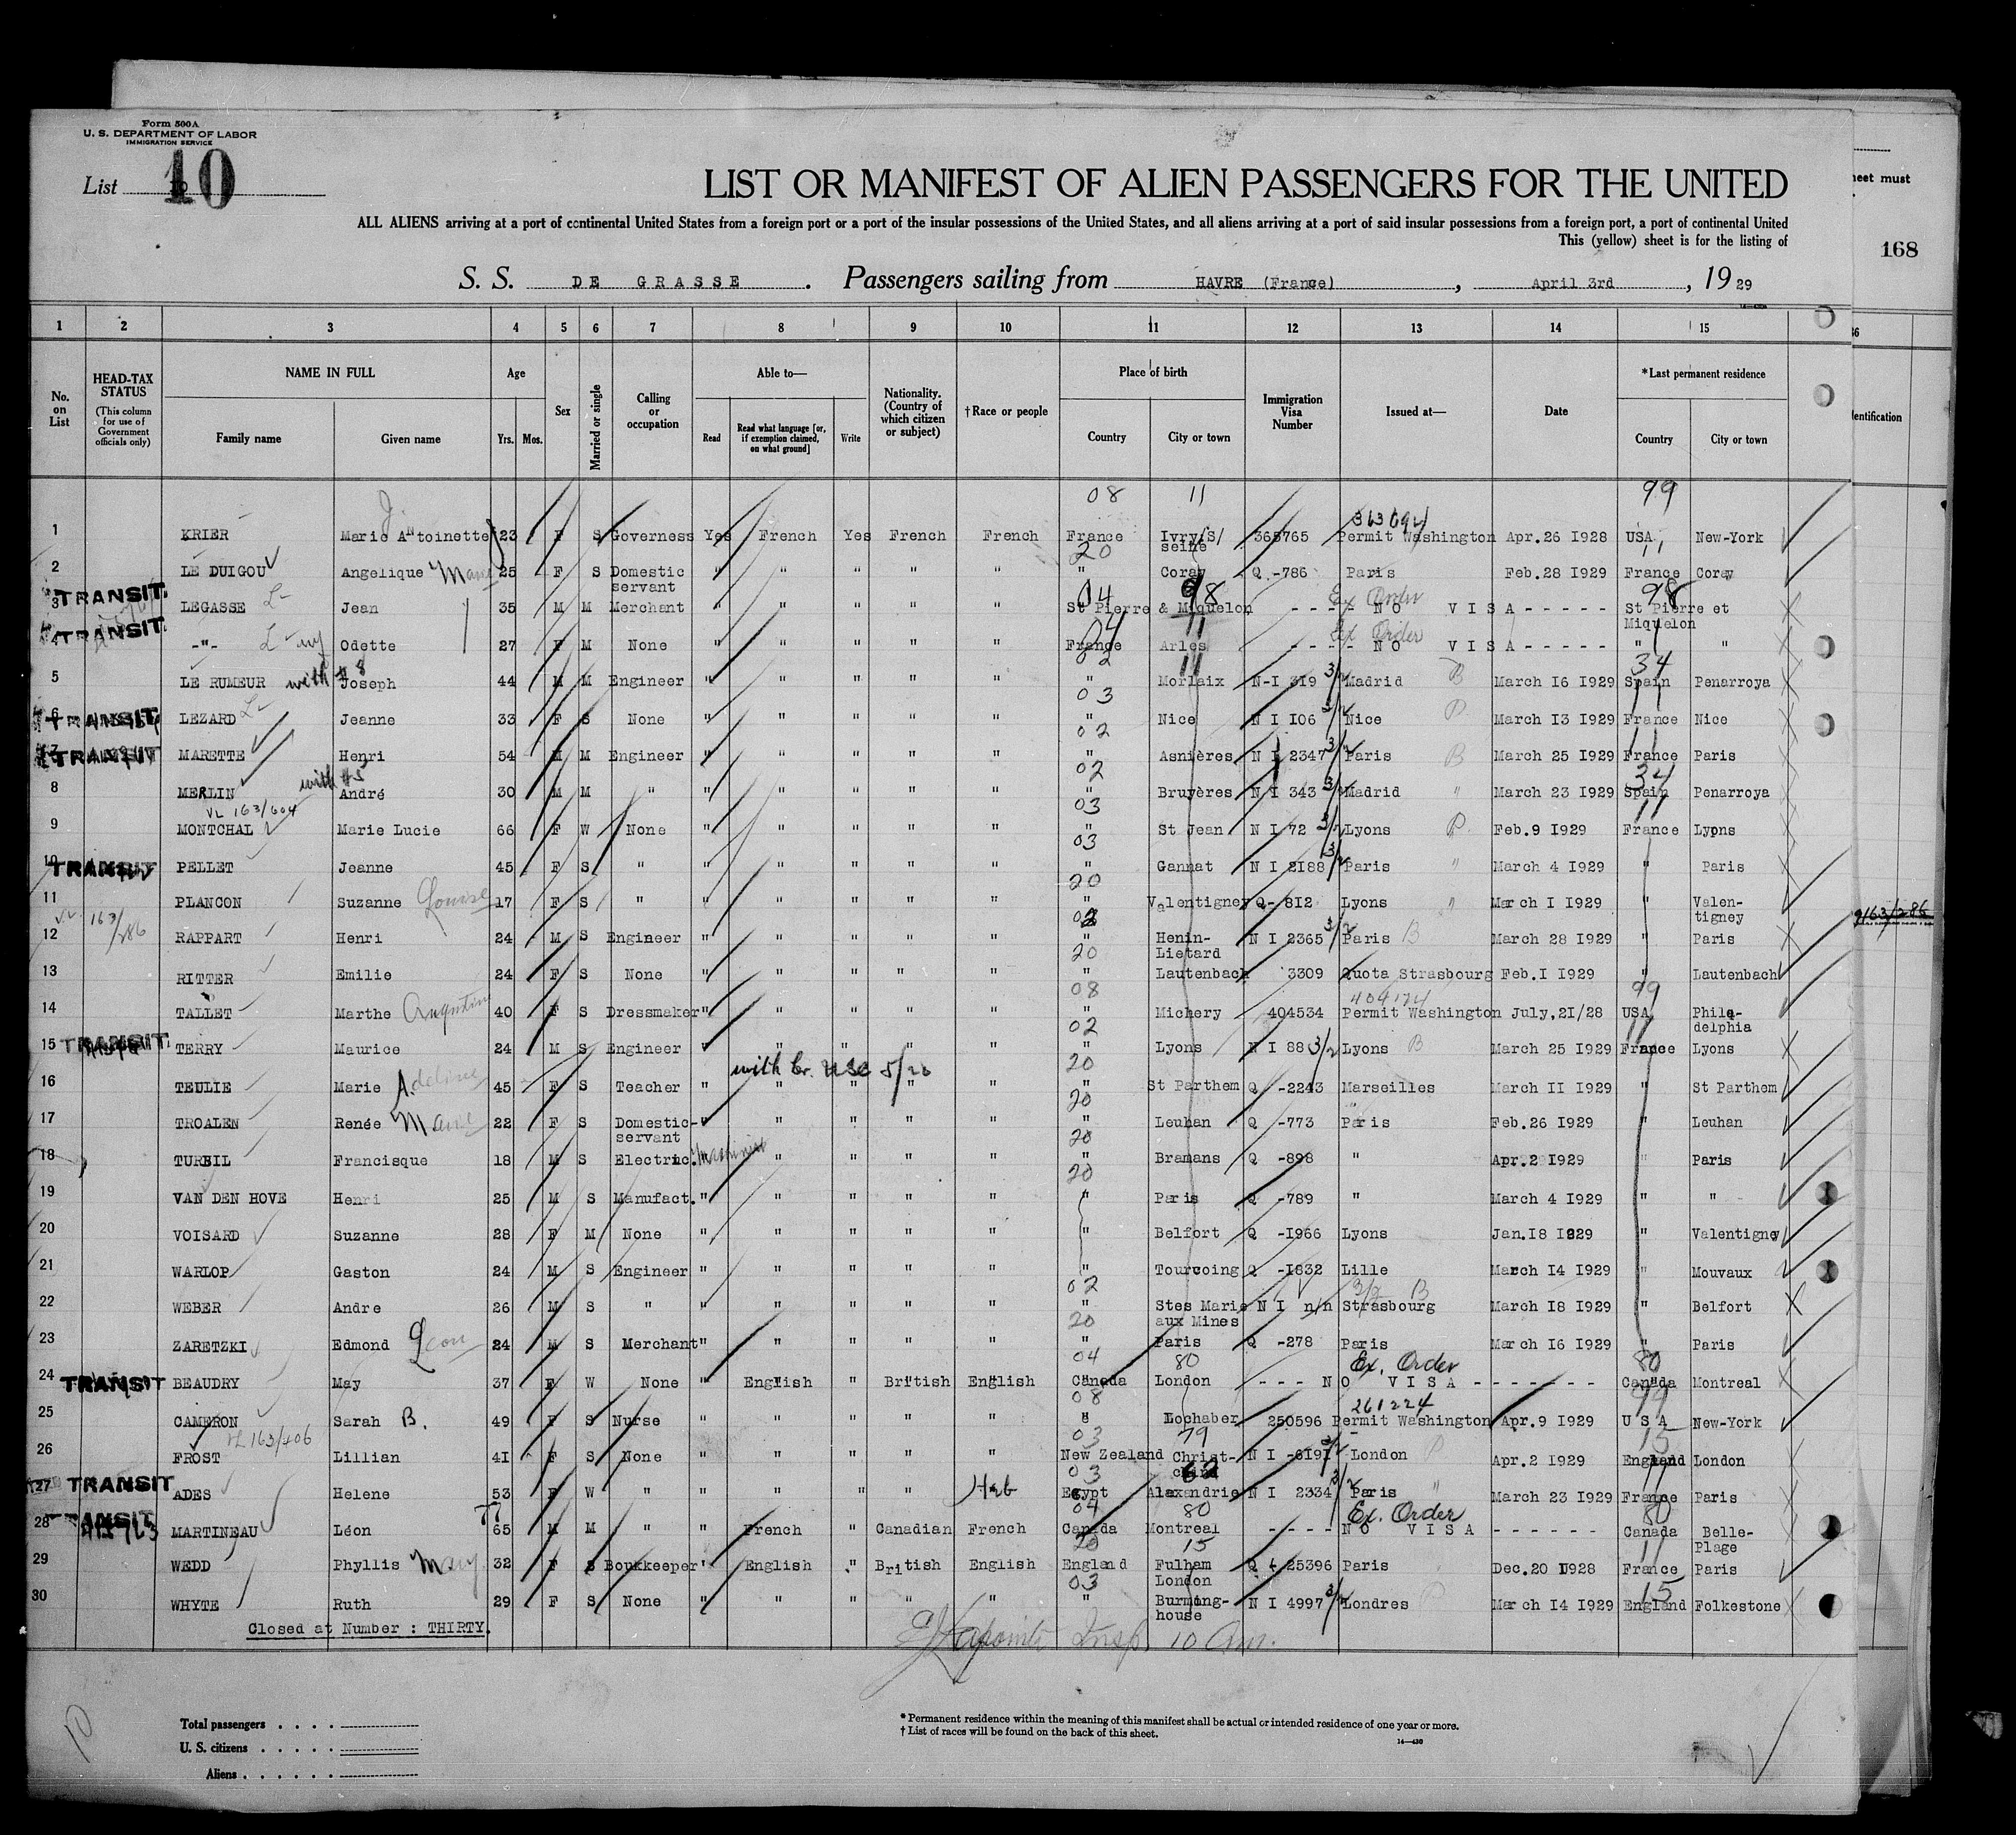 Form 500A
U. S. DEPARTMENT OF LABOR
IMMIGRATION SERVICE
List 10
LIST OR MANIFEST OF ALIEN PASSENGERS FOR THE UNITED
ALL ALIENS arriving at a port of continental United States from a foreign port or a port of the insular possessions of the United States, and all aliens arriving at a port of said insular possessions from a foreign port, a port of continental United
This (yellow) sheet is for the listing of
heet must
168
S. S. DE GRASSE . Passengers sailing from HAVRE (France) , April 3rd , 19 29
1 2 3 4 5 6 7 8 9 10 11 12 13 14 15
No. on List
HEAD-TAX STATUS (This column for use of Government officials only)
NAME IN FULL
Family name Given name
Age
Yrs. Mos.
Sex
Married or single
Calling or occupation
Able to—
Read Read what language [or, if exemption claimed, on what ground] Write
Nationality. (Country of which citizen or subject)
†Race or people
Place of birth
Country City or town
Immigration Visa Number
Issued at—
Date
*Last permanent residence
Country City or town
dentification
08 11 99
363694
1 KRIER Marie Antoinette J. 23 F S Governess Yes French Yes French French France Ivry/S/ seine 365765 Permit Washington Apr.26 I928 USA New-York
20 11
2 LE DUIGOU Angelique Marie 25 F S Domestic servant " " " " " " Coray Q -786 Paris Feb.28 I929 France Coray
04 98 Ex Order 98
TRANSIT
3 LEGASSE Jean 35 M M Merchant " " " " " St Pierre & Miquelon - - - - NO VISA - - - - - St Pierre et Miquelon
04 11 Ex Order
TRANSIT
4 -"- Odette 27 F M None " " " " " France Arles - - - - NO VISA - - - - - " "
02 11 3/2 34
5 LE RUMEUR with #8 Joseph 44 M M Engineer " " " " " " Morlaix N-I 319 Madrid B March I6 I929 Spain Penarroya
03 11
TRANSIT
6 LEZARD Jeanne 33 F S None " " " " " " Nice N I I06 Nice P March I3 I929 France Nice
02 3/2 11
TRANSIT
7 MARETTE Henri 54 M M Engineer " " " " " " Asnières N I 2347 Paris B March 25 I929 France Paris
02 34
8 MERLIN with #5 André 30 M M " " " " " " " Bruyères N I 343 Madrid " March 23 I929 Spain Penarroya
VL 163/604 03 11
9 MONTCHAL Marie Lucie 66 F W None " " " " " " St Jean N I 72 3/2 Lyons P Feb.9 I929 France Lyons
03
TRANSIT
10 PELLET Jeanne 45 F S " " " " " " " Gannat N I 2I88 3/2 Paris " March 4 I929 " Paris
20
11 PLANCON Suzanne Louise 17 F S " " " " " " " Valentigney Q- 8I2 Lyons " March I I929 " Valen- tigney
163/286 9163/286
02
12 RAPPART Henri 24 M S Engineer " " " " " " Henin- Lietard N I 2365 3/2 Paris B March 28 I929 " Paris
20
13 RITTER Emilie 24 F S None " " " " " " Lautenbach 3309 Quota Strasbourg Feb.I I929 " Lautenbach
08 404174 99
14 TALLET Marthe Augustine 40 F S Dressmaker " " " " " " Michery 404534 Permit Washington July,2I/28 USA Phila- delphia
02 11
TRANSIT
15 TERRY Maurice 24 M S Engineer " " " " " " Lyons N I 88 3/2 Lyons B March 25 I929 France Lyons
20
16 TEULIE Marie Adeline 45 F S Teacher " " " " " " St Parthem Q -2243 Marseilles March II I929 " St Parthem
20
17 TROALEN Renée Marie 22 F S Domestic- servant " " " " " " Leuhan Q -773 Paris Feb.26 I929 " Leuhan
20
18 TUREIL Francisque 18 M S Electric. Machinist " " " " " Bramans Q -898 " Apr.2 I929 " Paris
20
19 VAN DEN HOVE Henri 25 M S Manufact. " " " " " " Paris Q -789 " March 4 I929 " "
20 VOISARD Suzanne 28 F M None " " " " " " Belfort Q -I966 Lyons Jan.I8 I929 " Valentigney
21 WARLOP Gaston 24 M S Engineer " " " " " " Tourcoing Q -I832 Lille March I4 I929 " Mouvaux
02 3/2 B
22 WEBER Andre 26 M S " " " " " " " Stes Marie aux Mines N I n/n Strasbourg March I8 I929 " Belfort
20
23 ZARETZKI Edmond Leon 24 M S Merchant " " " " " " Paris Q -278 Paris March I6 I929 " Paris
04 80 Ex. Order 80
TRANSIT
24 BEAUDRY May 37 F W None " English " British English Canada London - - - NO VISA - - - - - - - Canada Montreal
08 261224 99
25 CAMERON Sarah B. 49 F S Nurse " " " " " " Lochaber 250596 Permit Washington Apr.9 I929 U S A New-York
VL 163/406 03 79 15
26 FROST Lillian 41 F S None " " " " " New Zealand Christ- N I -6I9I 3/2 London P Apr.2 I929 England London
03 62 11
TRANSIT
27 ADES Helene 53 F W " " " " " Heb Egypt Alexandria N I 2334 3/2 Paris " March 23 I929 France Paris
04 80 Ex. Order 80
TRANSIT
28 MARTINEAU Léon 65 M M " " French " Canadian French Canada Montreal - - - - NO VISA - - - - - - Canada Belle- Plage
20 15 11
29 WEDD Phyllis May 32 F S Bookkeeper " English " British English England Fulham London Q - 25396 Paris Dec.20 I928 France Paris
03 15
30 WHYTE Ruth 29 F S None " " " " " " Burming- house N I 4997 3/2 Londres P March I4 I929 England Folkestone
Closed at Number : THIRTY.
Insp. 10 Am.
10
Total passengers . . . .
U. S. citizens . . . . .
Aliens . . . . . .
* Permanent residence within the meaning of this manifest shall be actual or intended residence of one year or more.
† List of races will be found on the back of this sheet.
14—430